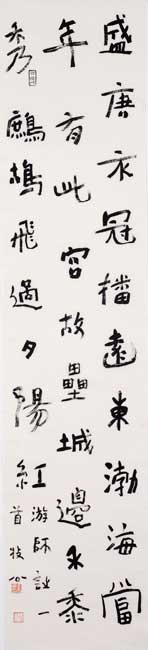 盛唐衣冠播遠東渤海當
年有此容故壘城邊禾黍
秀鷓鴣飛過夕陽紅
游師詠一
首牧